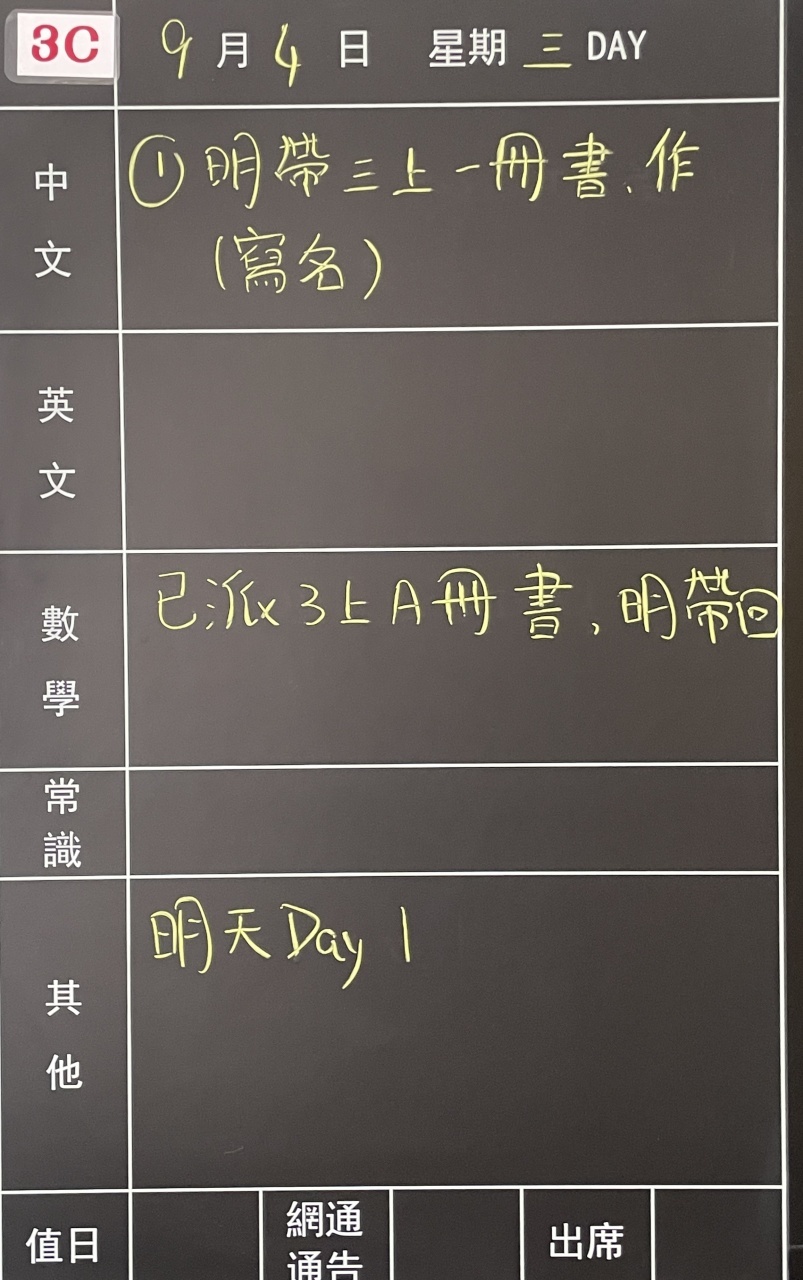 3C
9月4日 星期三DAY
中文
①明帶三上一冊書、作
(寫名)
英文
數學
已派3上A冊書，明帶回
常識
其他
明天Day 1
值日
網通
通告
出席